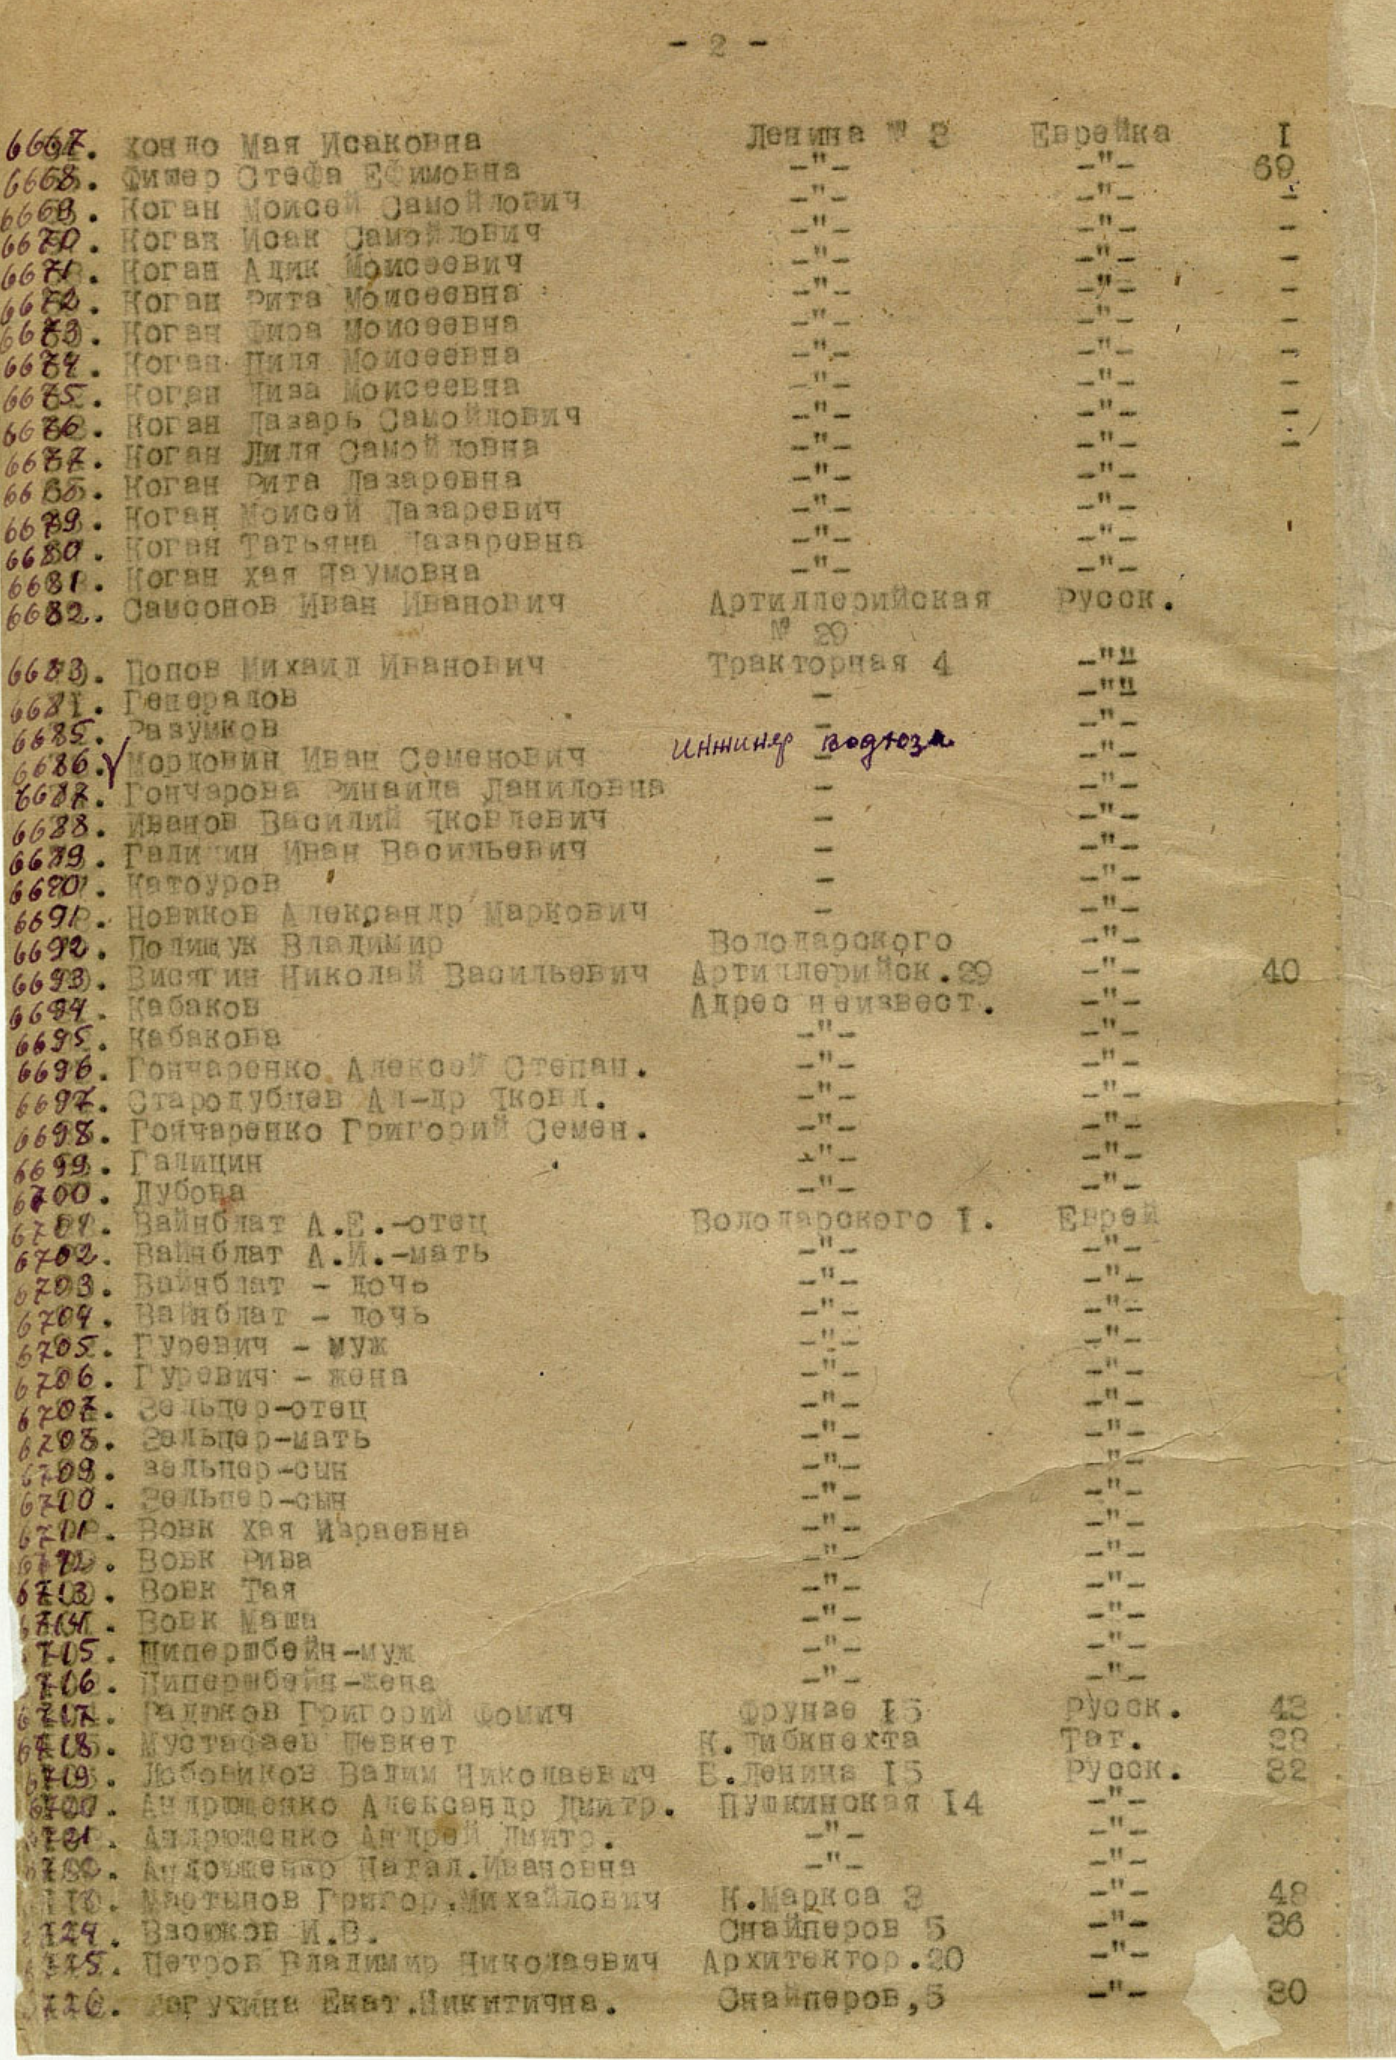 - 2 -
6667. Хондо Мая Исаковна Ленина № 3 Еврейка I
6668. Фишер Стефа Ефимовна -"- -"- 69
6669. Коган Моисей Самойлович -"- -"- -
6670. Коган Исак Самойлович -"- -"- -
6671. Коган Адик Моисеевич -"- -"- -
6672. Коган Рита Моисеевна -"- -"- -
6673. Коган Фира Моисеевна -"- -"- -
6674. Коган Циля Моисеевна -"- -"- -
6675. Коган Лиза Моисеевна -"- -"- -
6676. Коган Лазарь Самойлович -"- -"- -
6677. Коган Лиля Самойловна -"- -"- -
66 Коган Рита Лазаревна -"- -"-
6679. Коган Моисей Лазаревич -"- -"-
6680. Коган Татьяна Лазаревна -"- -"-
6681. Коган хая Наумовна -"- -"-
6682. Самсонов Иван Иванович Артиллерийская Русск.
№ 29
6683. Попов Михаил Иванович Тракторная 4 -""
6684. Генералов - -""
6685. Разумков - -"-
6686. √ Мордовин Иван Семенович инжинер водхоза - -"-
6687. Гончарова Зинаида Даниловна - -"-
6688. Иванов Василий Яковлевич - -"-
6689. Галицин Иван Васильевич - -"-
6690. Катоуров - -"-
6691. Новиков Александр Маркович - -"-
6692. Полищук Владимир Володарского -"-
6693. Висягин Николай Васильевич Артиллерийск.29 -"- 40
6694. Кабаков Адрес неизвест. -"-
6695. Кабакова -"- -"-
6696. Гончаренко Алексей Степан. -"- -"-
6697. Стародубцев Ал-др Яковл. -"- -"-
6698. Гончаренко Григорий Семен. -"- -"-
6699. Галицин -"- -"-
6700. Дубова -"- -"-
6701. Вайнблат А.Е.-отец Володарского I. Еврей
6702. Вайнблат А.И.-мать -"- -"-
6703. Вайнблат - дочь -"- -"-
6704. Вайнблат - дочь -"- -"-
6705. Гуревич - муж -"- -"-
6706. Гуревич - жена -"- -"-
6707. Зельцер-отец -"- -"-
6708. Зельцер-мать -"- -"-
6709. зельцер-сын -"- -"-
6710. Зельцер-сын -"- -"-
6711. Вовк хая Израевна -"- -"-
6712. Вовк Рива -"- -"-
6713. Вовк Тая -"- -"-
6714. Вовк Маша -"- -"-
6715. Ципершбейн-муж -"- -"-
6716. Ципершбейн-жена -"- -"-
6717. Радюков Григорий Фомич Фрунзе I5 Русск. 43
6718. Мустафаев Шевкет К.Либкнехта Тат. 28
6719. Лобовиков Вадим Николаевич В.Ленина I5 Русск. 32
6720. Андрющенко Александр Дмитр. Пушкинская I4 -"-
6721. Андрющенко Андрей Дмитр. -"- -"-
Андрющенко Натал.Ивановна -"- -"-
Мартынов Григор.Михайлович К.Маркса 3 -"- 48
724. Васюков И.В. Снайперов 5 -"- 36
Петров Владимир Николаевич Архитектор.20 -"-
Екат.Никитична. Снайперов,5 -"- 30